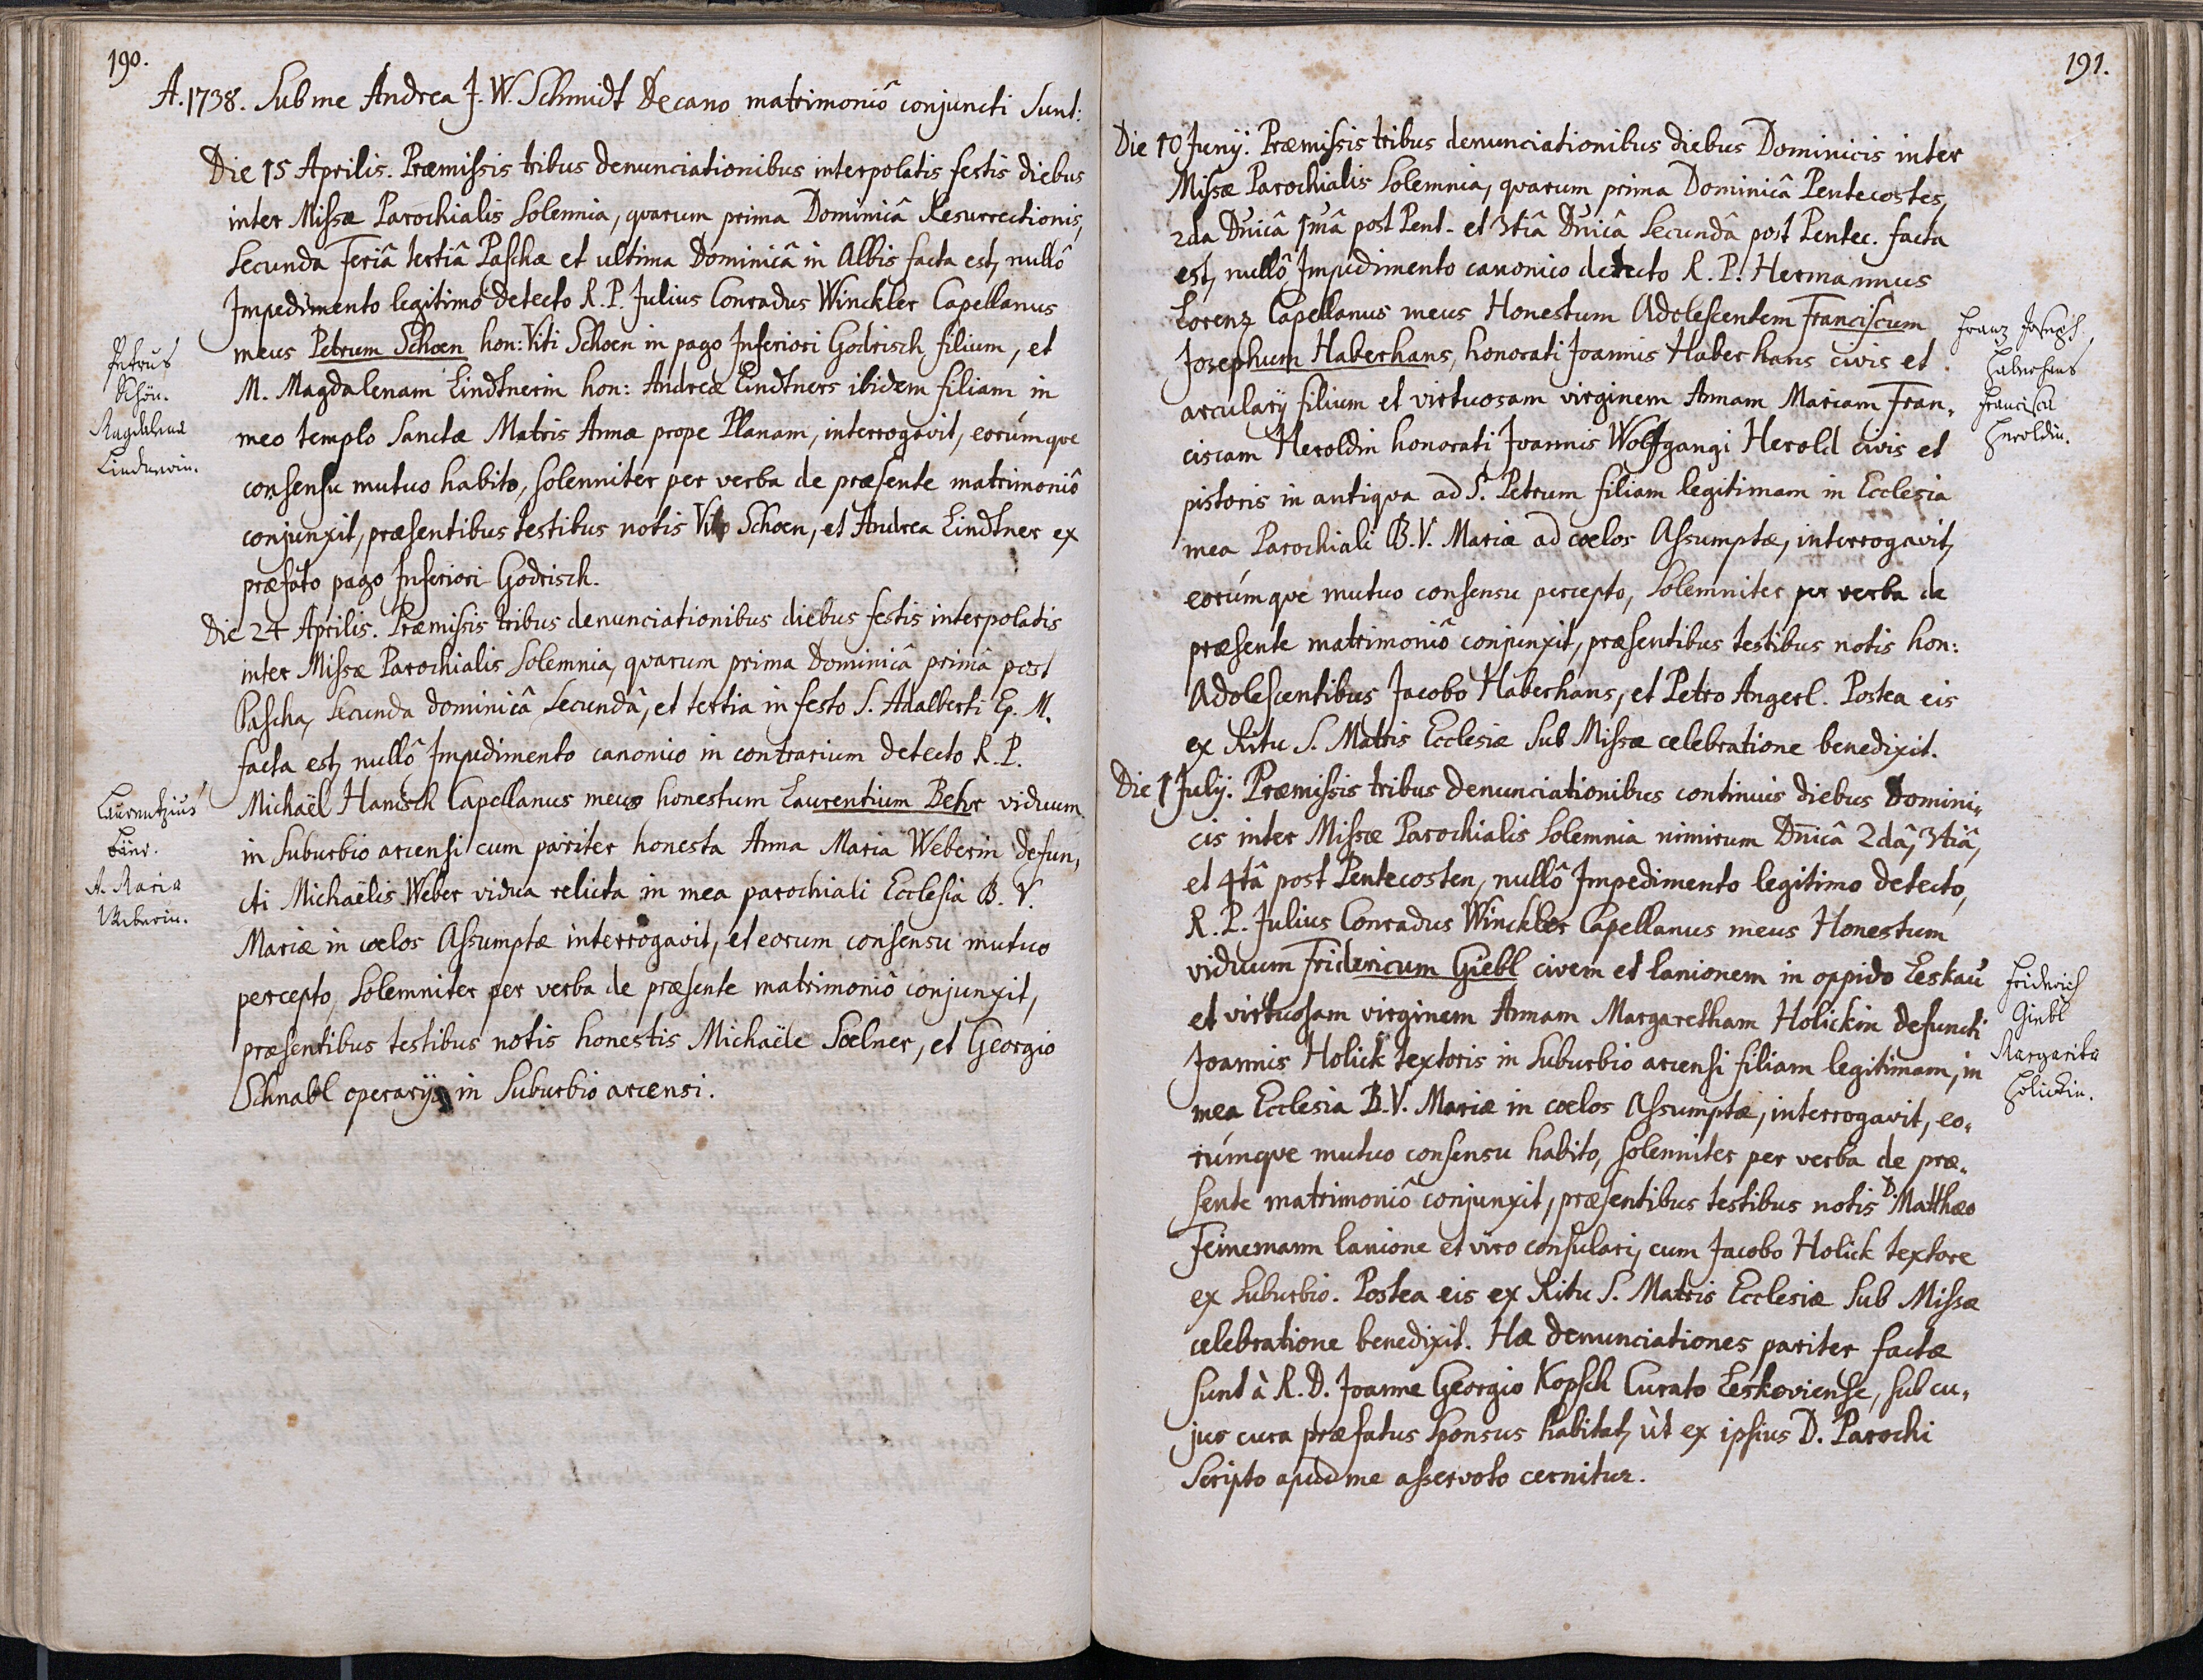 190.
A. 1738. Sub me Andrea J. W. Schmidt Decano matrimoniô conjuncti sunt:
Die 15 Aprilis. Præmissis tribus denunciationibus interpolatis festis diebus
inter Missæ Parochialis solemnia, quarum prima Dominicâ Resurrectionis,
secunda Feriâ tertiâ Paschæ et ultima Dominicâ in Albis facta est, nullô
Impedimento legitimô detecto R. P. Julius Conradus Winckler Capellanus
meus Petrum Schoen hon: Viti Schoen in pago Inferiori Godrisch filium, et
M. Magdalenam Lindtnerin hon: Andreæ Lindtners ibidem filiam in
meo templo Sanctæ Matris Annæ prope Planam, interrogavit, eorúmque
consensu mutuo habito, solenniter per verba de præsente matrimoniô
conjunxit, præsentibus testibus notis Vito Schoen, et Andrea Lindtner ex
præfato pago Inferiori Godrisch.
Petrus
Schön.
Magdalena
Lindnerin.
Die 24 Aprilis. Præmissis tribus denunciationibus diebus festis interpolatis
inter Missæ Parochialis solemnia, quarum prima Dominicâ primâ post
Pascha, secunda dominicâ secundâ, et tertia in festo S. Adalberti Ep. M.
facta est, nullô Impedimento canonico in contrarium detecto R. P.
Michaël Hanisch Capellanus meus honestum Laurentium Behr viduum
in suburbio arcensi cum pariter honesta Anna Maria Weberin defun,
cti Michaëlis Weber vidua relicta in mea parochiali Ecclesia B. V.
Mariæ in cœlos Assumptæ interrogavit, et eorum consensu mutuo
percepto, solemniter per verba de præsente matrimoniô conjunxit,
præsentibus testibus notis honestis Michaële Soelner, et Georgio
Schnabl operarijs in suburbio arcensi.
Laurentzius
Bär.
A. Maria
Weberin.
191.
Die 10 Junij. Præmissis tribus denunciationibus diebus Dominicis inter
Missæ Parochialis solemnia, quarum prima Dominicâ Pentecostes,
2da Dnicâ 1mâ post Pent. et 3tiâ Dnicâ secundâ post Pentec. facta
est, nullô Impedimento canonico detecto R. P. Hermannus
Lorenz Capellanus meus Honestum Adolescentem Franciscum
Josephum Haberhans, honorati Joannis Haberhans civis et
arcularij filium et virtuosam virginem Annam Mariam Fran,
ciscam Heroldin honorati Joannis Wolfgangi Herold civis et
pistoris in antiqva ad S. Petrum filiam legitimam in Ecclesia
mea Parochiali B. V. Mariæ ad cœlos Assumptæ, interrogavit,
eorúmque mutuo consensu percepto, solemniter per verba de
præsente matrimoniô conjunxit, præsentibus testibus notis hon:
Adolescentibus Jacobo Haberhans, et Petro Angerl. Postea eis
ex Ritu S. Matris Ecclesiæ sub Missæ celebratione benedixit.
Franz Joseph
Haberhans
Francisca
Heroldin.
Die 1 Julij. Præmissis tribus denunciationibus continuis diebus Domini,
cis inter Missæ Parochialis solemnia nimirum Dnicâ 2dâ, 3tiâ,
et 4tâ post Pentecosten, nullô Impedimento legitimo detecto,
R. P. Julius Conradus Winckler Capellanus meus Honestum
viduum Fridericum Giebl civem et lanionem in oppido Leskau
et virtuosam virginem Annam Margaretham Holickin defuncti
Joannis Holick textoris in suburbio arcensi filiam legitimam, in
mea Ecclesia B. V. Mariæ in cœlos Assumptæ, interrogavit, eo,
rúmque mutuo consensu habito, solenniter per verba de præ,
sente matrimoniô conjunxit, præsentibus testibus notis D. Matthæo
Feinemann lanione et viro consulari, cum Jacobo Holick textore
ex suburbio. Postea eis ex Ritu S. Matris Ecclesiæ sub Missæ
celebratione benedixit. Hæ denunciationes pariter factæ
sunt à R. D. Joanne Georgio Kopsch Curato Leskoviense, sub cu,
jus cura præfatus sponsus habitat, ùt ex ipsius D. Parochi
scripto apud me asservato cernitur.
Friderich
Giebl
Margarita
Holickin.